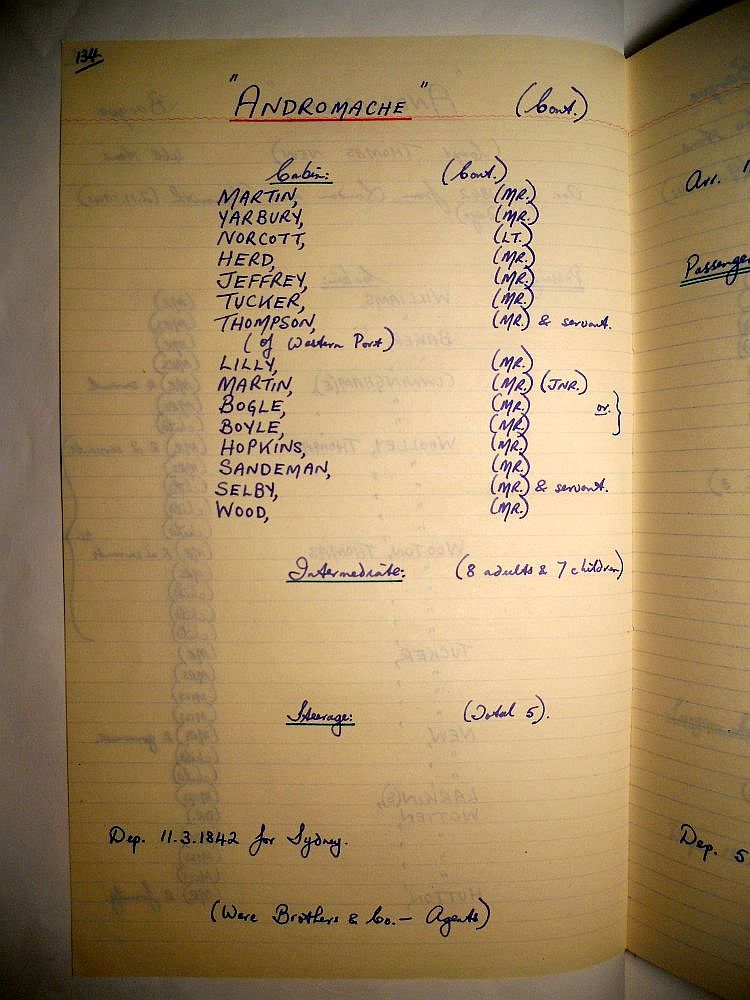 134
"ANDROMACHE" (Cont.)
Cabin: (Cont.)
MARTIN, (MR.)
YARBURY, (MR.)
NORCOTT, (LT.)
HERD, (MR.)
JEFFREY, (MR.)
TUCKER, (MR.)
THOMPSON, (MR.) & servant.
(of Western Port)
LILLY, (MR.)
MARTIN, (MR.) (JNR.)
BOGLE, (MR.) or. }
BOYLE, (MR.)
HOPKINS, (MR.)
SANDEMAN, (MR.)
SELBY, (MR.) & servant.
WOOD, (MR.)
Intermediate: (8 adults & 7 children)
Steerage: (Total 5).
Dep. 11.3.1842 for Sydney.
(Were Brothers & Co. - Agents)
Arr.
Passenger
Dep. 5